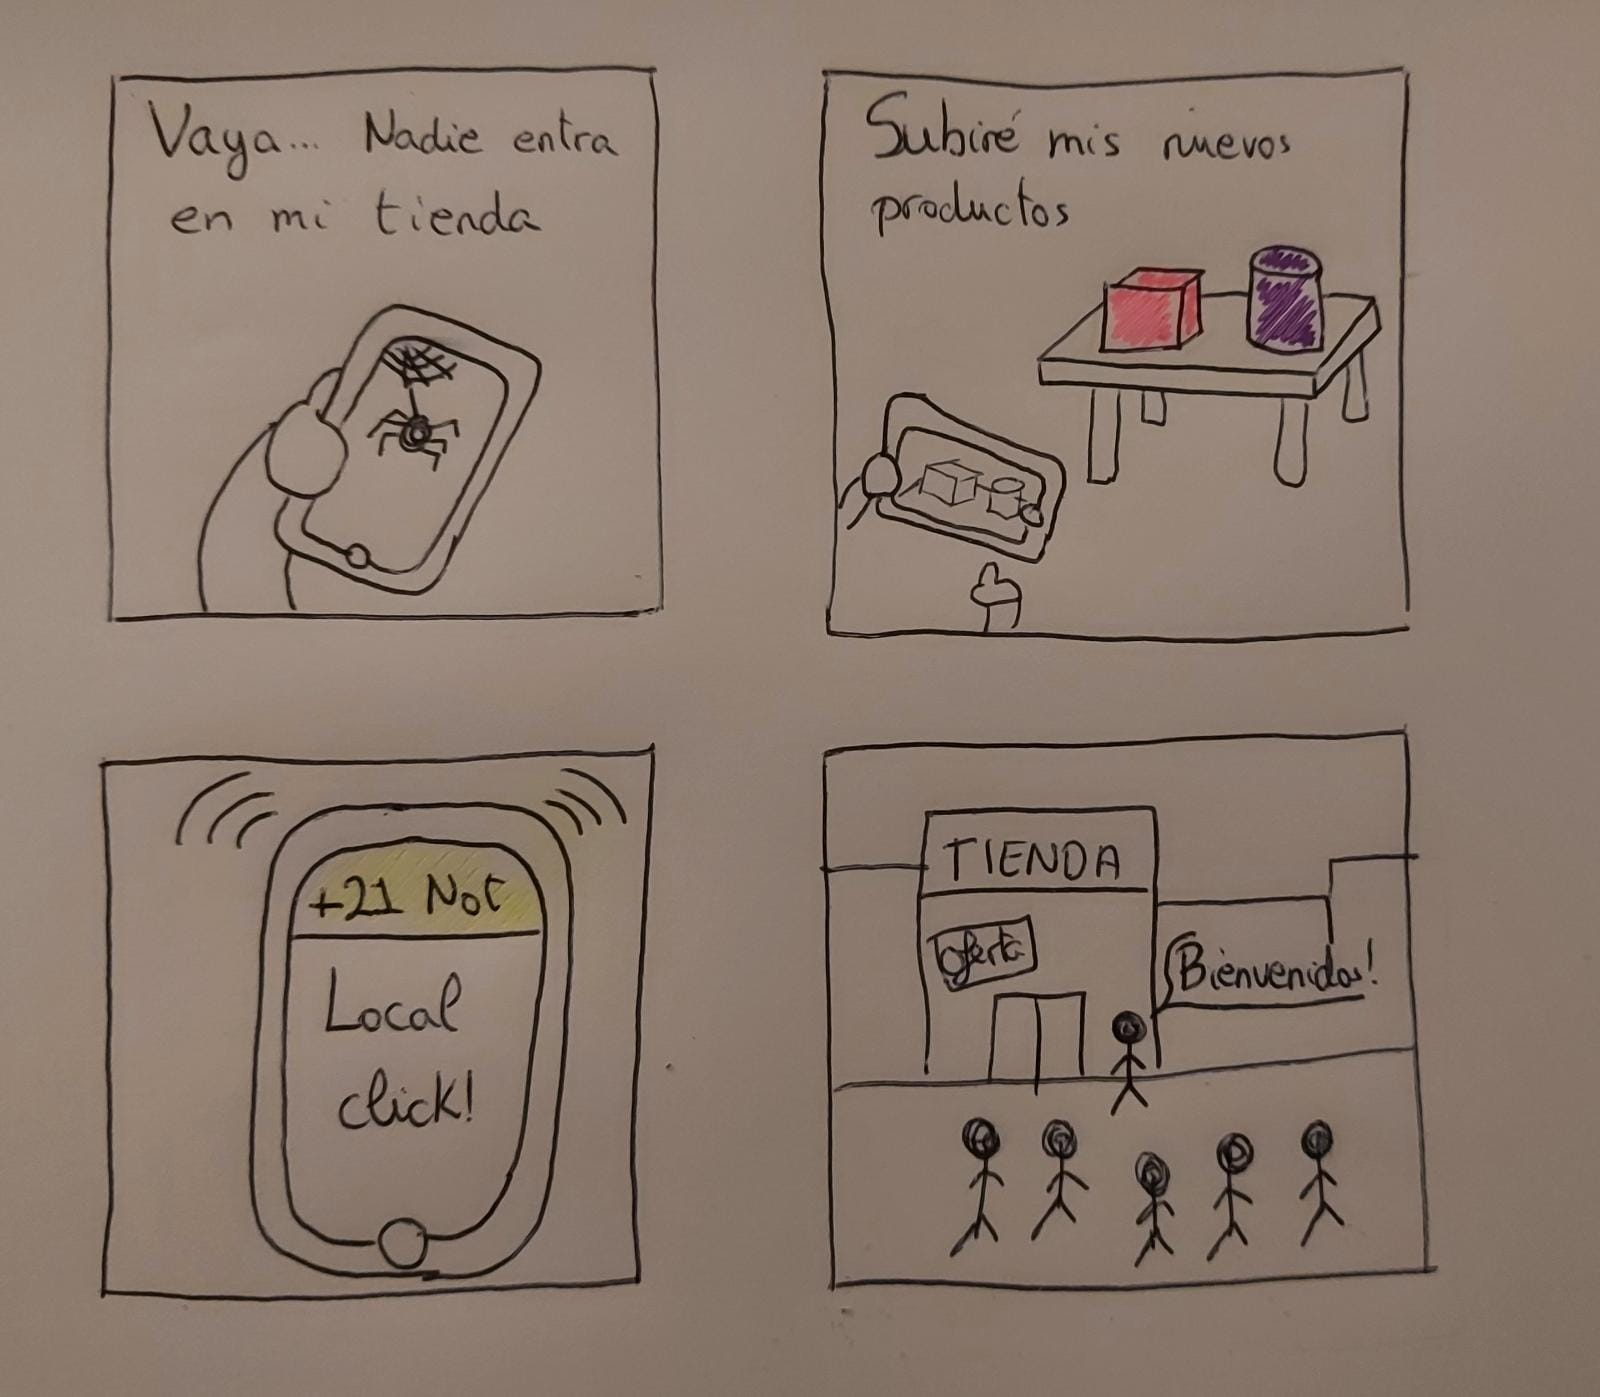 Vaya... Nadie entra
en mi tienda
Subiré mis nuevos
productos
+21 Not
Local
click!
TIENDA
Oferta
Bienvenidos!